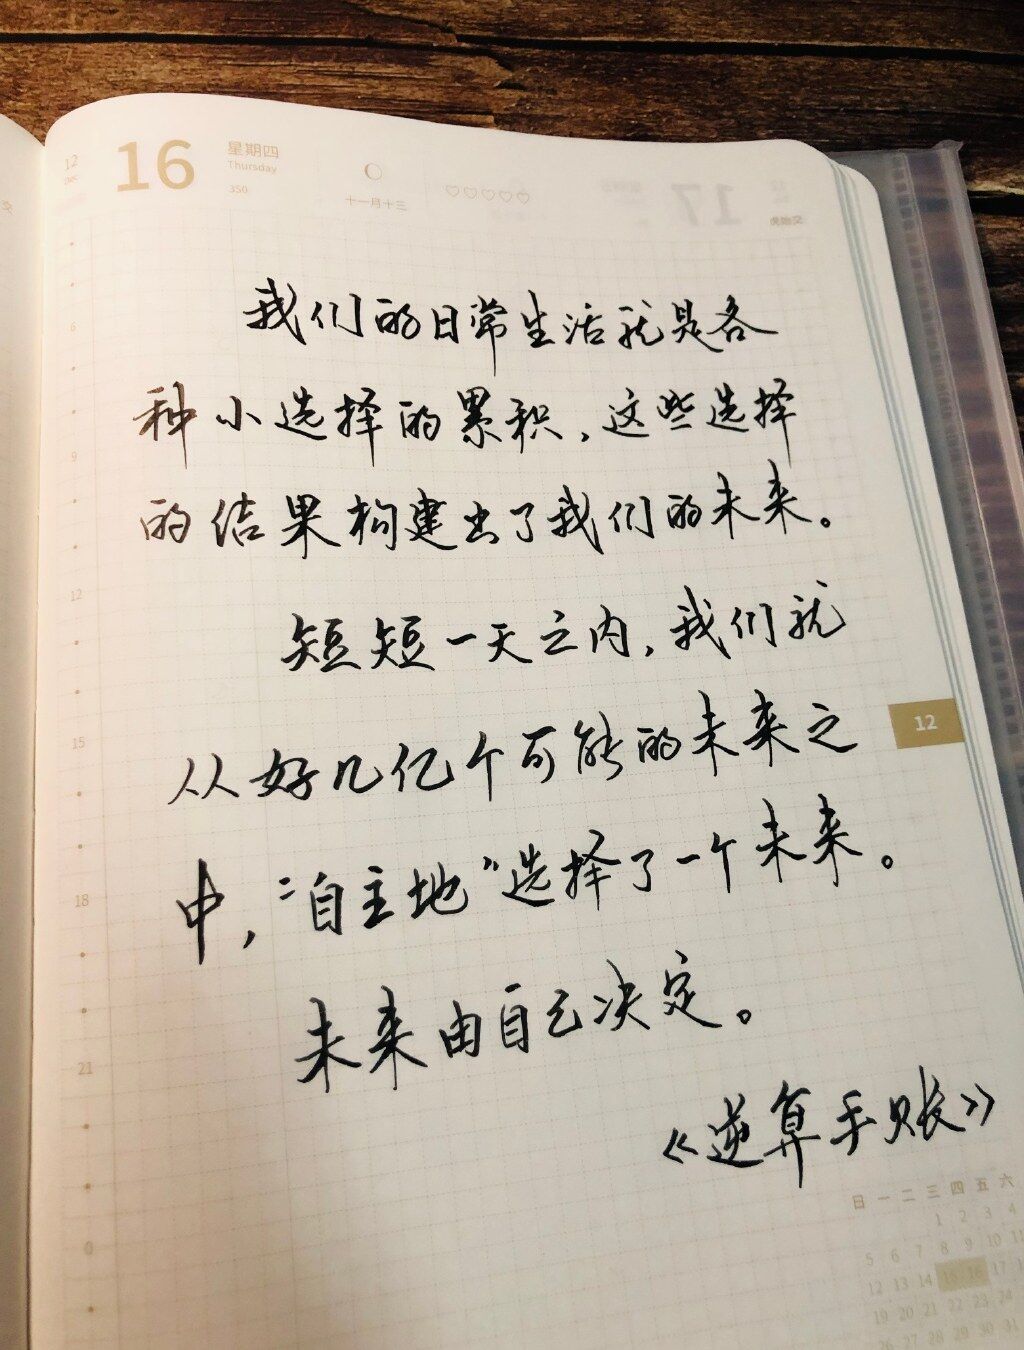 12
DEC
16
星期四
Thursday
350
十一月十三
我们的日常生活就是各
种小选择的累积，这些选择
的结果构建出了我们的未来。
短短一天之内，我们就
从好几亿个可能的未来之
中，“自主地”选择了一个未来。
未来由自己决定。
《逆算手账》
6
9
12
15
18
21
0
12
日 一 二 三 四 五 六
1 2 3 4
5 6 7 8 9 10 11
12 13 14 15 16 17
19 20 21 22 23 24
26 27 28 29 30 31